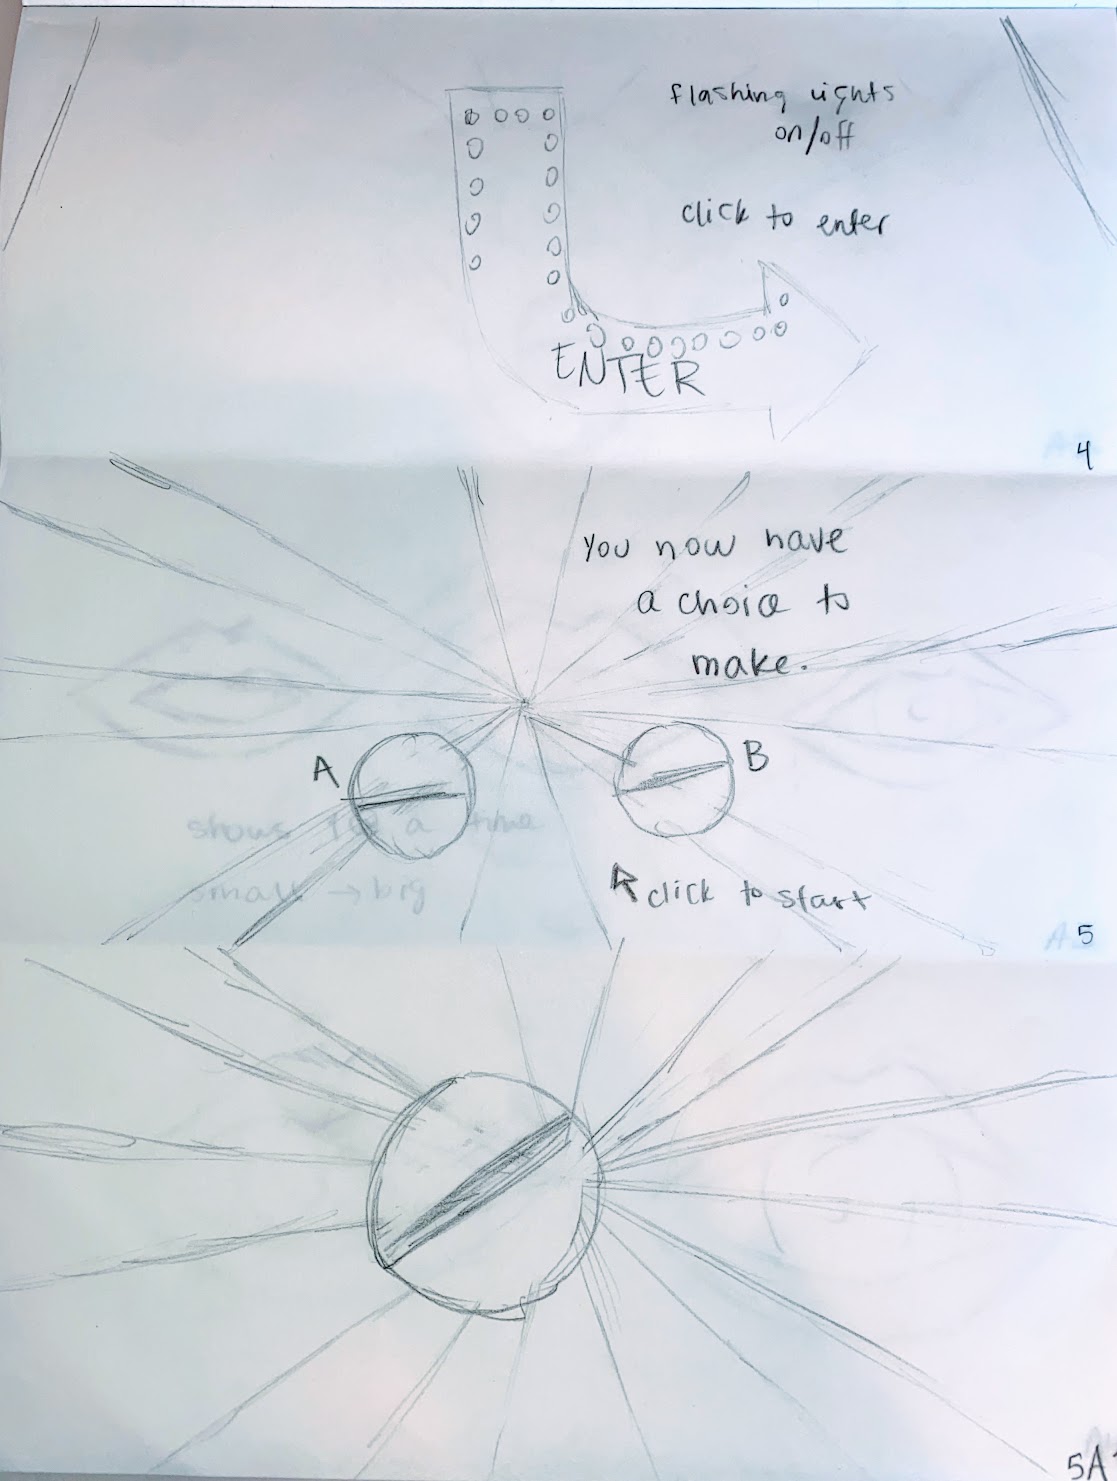 flashing lights
on/off
click to enter
ENTER
4
You now have
a choice to
make.
A
B
shows for a time
small → big
click to start
5
5A